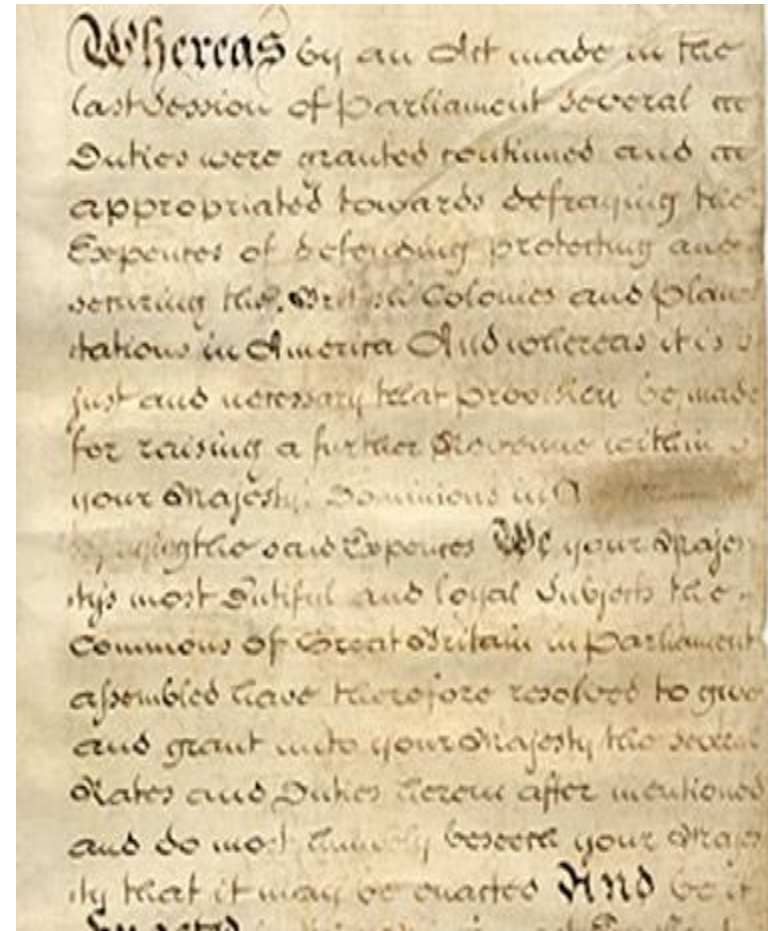 Whereas by an Act made in the
last Session of Parliament several
Duties were granted continued and
appropriated towards defraying the
Expences of defending protecting and
securing the British Colonies and Plan
tations in America And whereas it is
just and necessary that provision be made
for raising a further Revenue within
your Majesty's Dominions in
the said Expences We your Majes
ty's most Dutiful and loyal Subjects the
Commons of Great Britain in Parliament
assembled have therefore resolved to give
and grant unto your Majesty the several
Rates and Duties herein after mentioned
and do most humbly beseech your Majes
ty that it may be enacted And be it